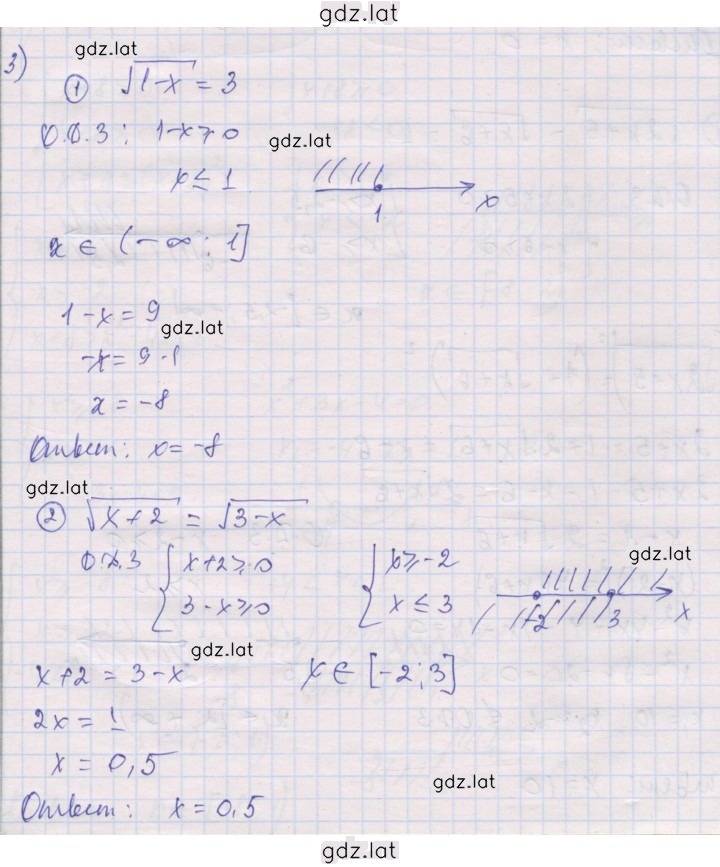 gdz.lat
3)
gdz.lat
① √(1-x) = 3
О.О.З: 1-x ≥ 0
gdz.lat
x ≤ 1
1 x
x ∈ (-∞; 1]
1-x = 9
gdz.lat
-x = 9-1
x = -8
Ответ: x = -8
gdz.lat
② √(x+2) = √(3-x)
О.О.З { x+2 ≥ 0 { x ≥ -2
gdz.lat
3-x ≥ 0 x ≤ 3
-2 3 x
gdz.lat
x+2 = 3-x x ∈ [-2; 3]
2x = 1
x = 0,5
gdz.lat
Ответ: x = 0,5
gdz.lat